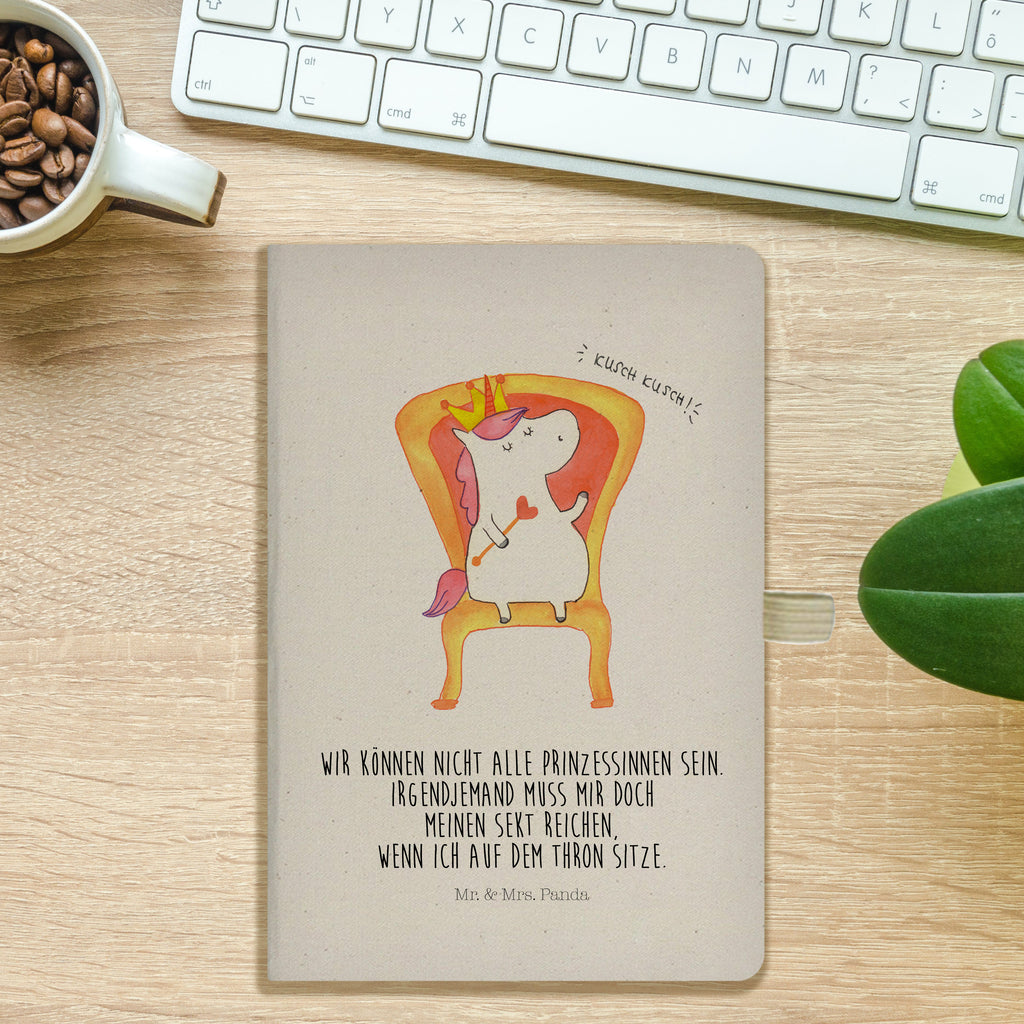 Y X C V B N M J K L "
Ô
ctrl alt cmd ⌘ ? < : > -
⌘ cmd
KUSCH KUSCH!
WIR KÖNNEN NICHT ALLE PRINZESSINNEN SEIN.
IRGENDJEMAND MUSS MIR DOCH
MEINEN SEKT REICHEN,
WENN ICH AUF DEM THRON SITZE.
Mr. & Mrs. Panda